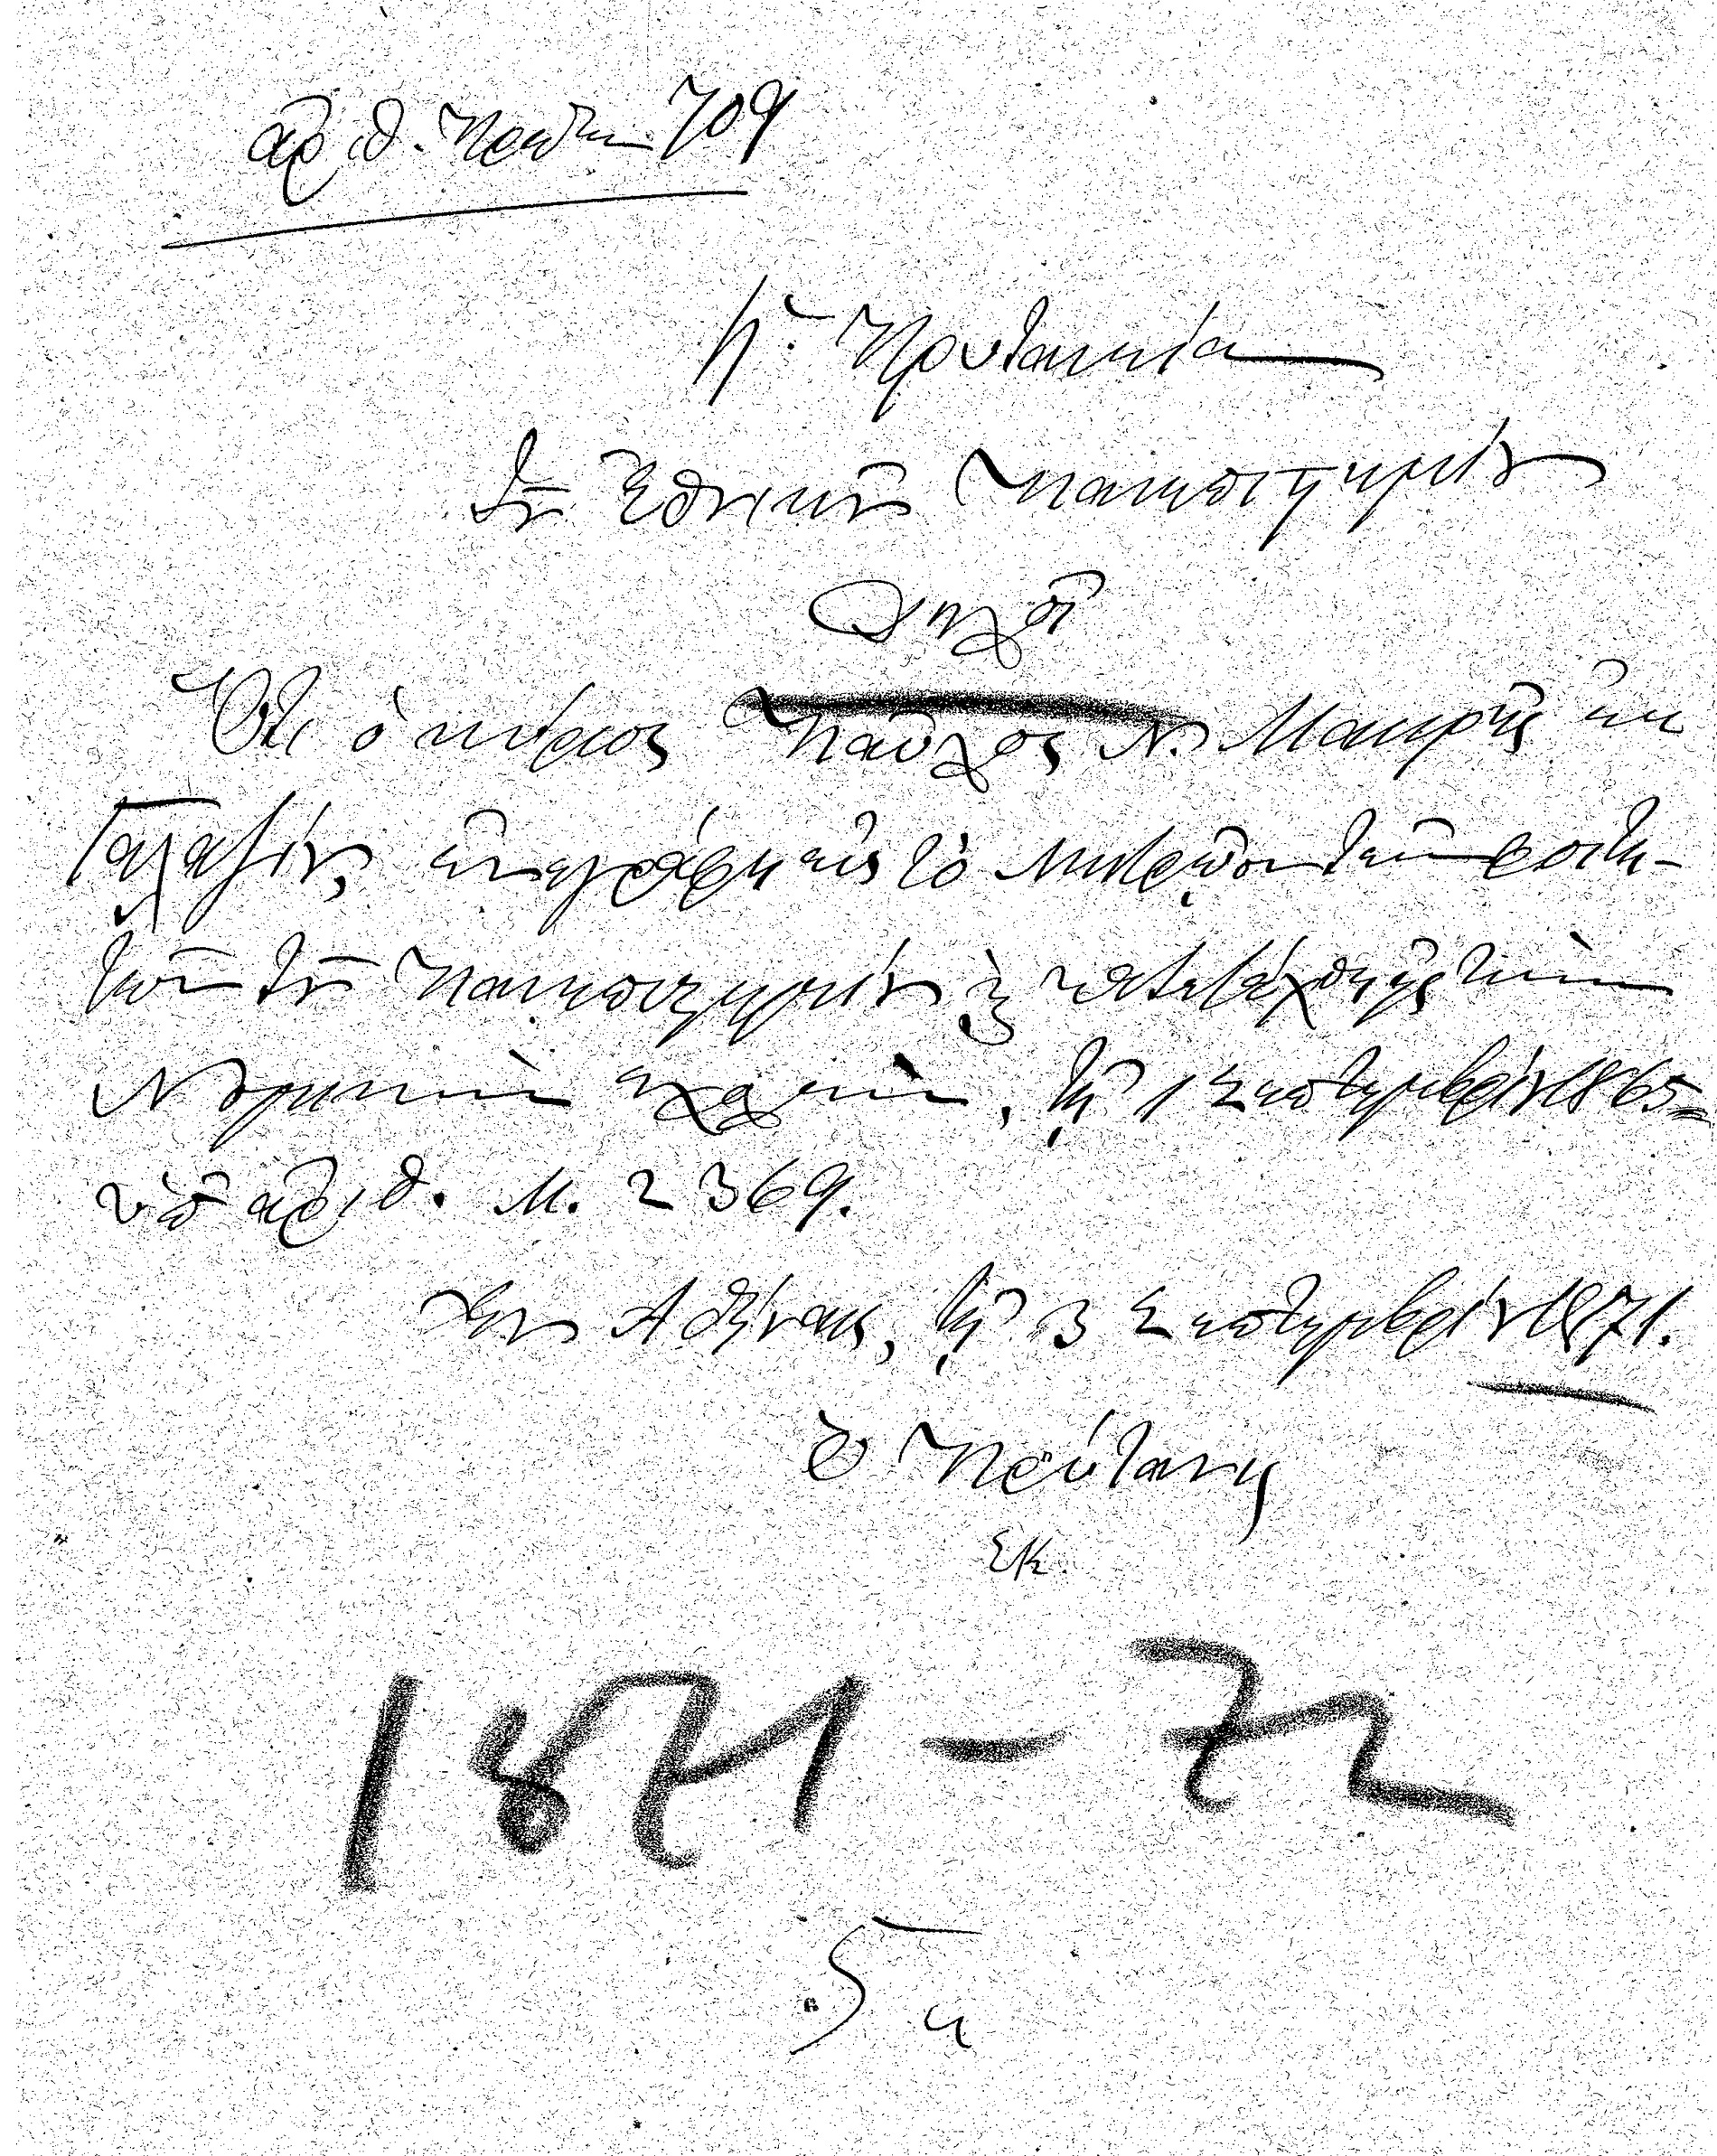 ἀριθ. Πρωτ. 709
Ἡ Πρυτανεία
τοῦ Ἐθνικοῦ Πανεπιστημίου
Δηλοῖ
Ὅτι ὁ κύριος Παῦλος Ν. Μακρῆς ἐκ
Γαλαξίου, ἐνεγράφη εἰς τὸ Μητρῷον τῶν φοιτη-
τῶν τοῦ Πανεπιστημίου καὶ κατετάχθη εἰς τὴν
Νομικὴν σχολὴν, τῇ 1 Σεπτεμβρίου 1865
ὑπ' ἀριθ. Μ. 2369.
Ἐν Ἀθήναις, τῇ 3 Σεπτεμβρίου 1871.
Ὁ Πρύτανις
ΣΚ.
1871 - 72